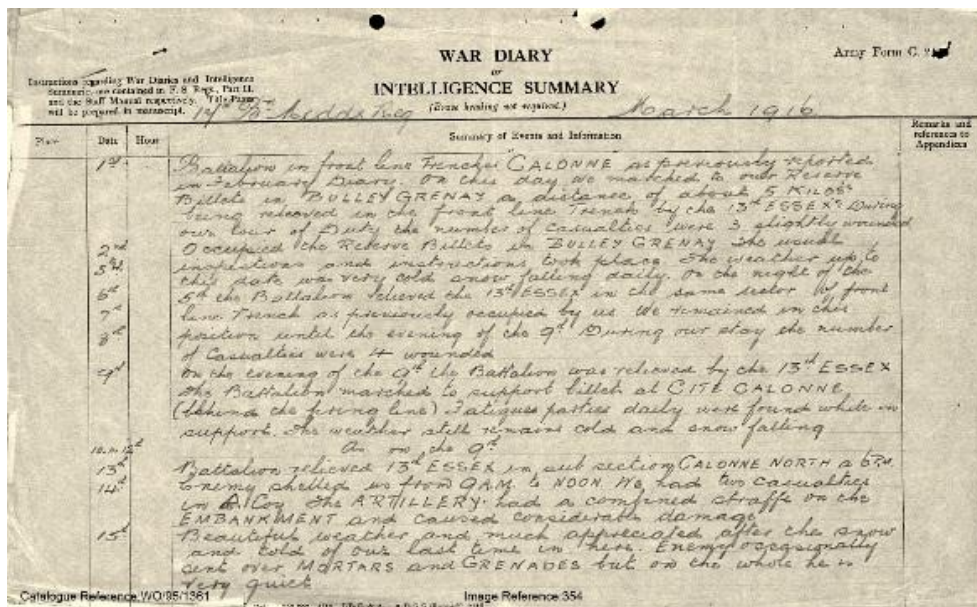 WAR DIARY
or
INTELLIGENCE SUMMARY
(Erase heading not required.)
Army Form C. 2
Instructions regarding War Diaries and Intelligence
Summaries are contained in F. S. Regs., Part II.
and the Staff Manual respectively. Title Pages
will be prepared in manuscript.
17th Bn Middx Reg March 1916
Place Date Hour Summary of Events and Information Remarks and
references to
Appendices
1st Battalion in front line trenches CALONNE as previously reported
in February Diary. On this day we marched to our Reserve
Billets in BULLEY GRENAY a distance of about 5 KILOS
being relieved in the front line Trench by the 13th ESSEX During
our tour of Duty the number of casualties were 3 slightly wounded
2nd Occupied the Reserve Billets in BULLEY GRENAY The usual
inspections and instructions took place The weather up to
this date was very cold snow falling daily. On the night of the
5th the Battalion relieved the 13th ESSEX in the same sector of front
7th line Trench as previously occupied by us We remained in this
8th position until the evening of the 9th During our stay the number
of Casualties were 4 wounded
9th On the evening of the 9th the Battalion was relieved by the 13th ESSEX
The Battalion marched to support billets at CITE CALONNE
(behind the firing line) Fatigues parties daily were found while in
support. The weather still remains cold and snow falling
As on the 9th
13th Battalion relieved 13th ESSEX in sub section CALONNE NORTH a 6pm.
14th Enemy shelled us from 9AM to NOON We had two casualties
in A Coy The ARTILLERY had a combined straffe on the
EMBANKMENT and caused considerable damage
15th Beautiful weather and much appreciated after the snow
and cold of our last time in here. Enemy occasionally
sent over MORTARS and GRENADES but on the whole he is
very quiet
Catalogue Reference:WO/95/1361 Image Reference:354